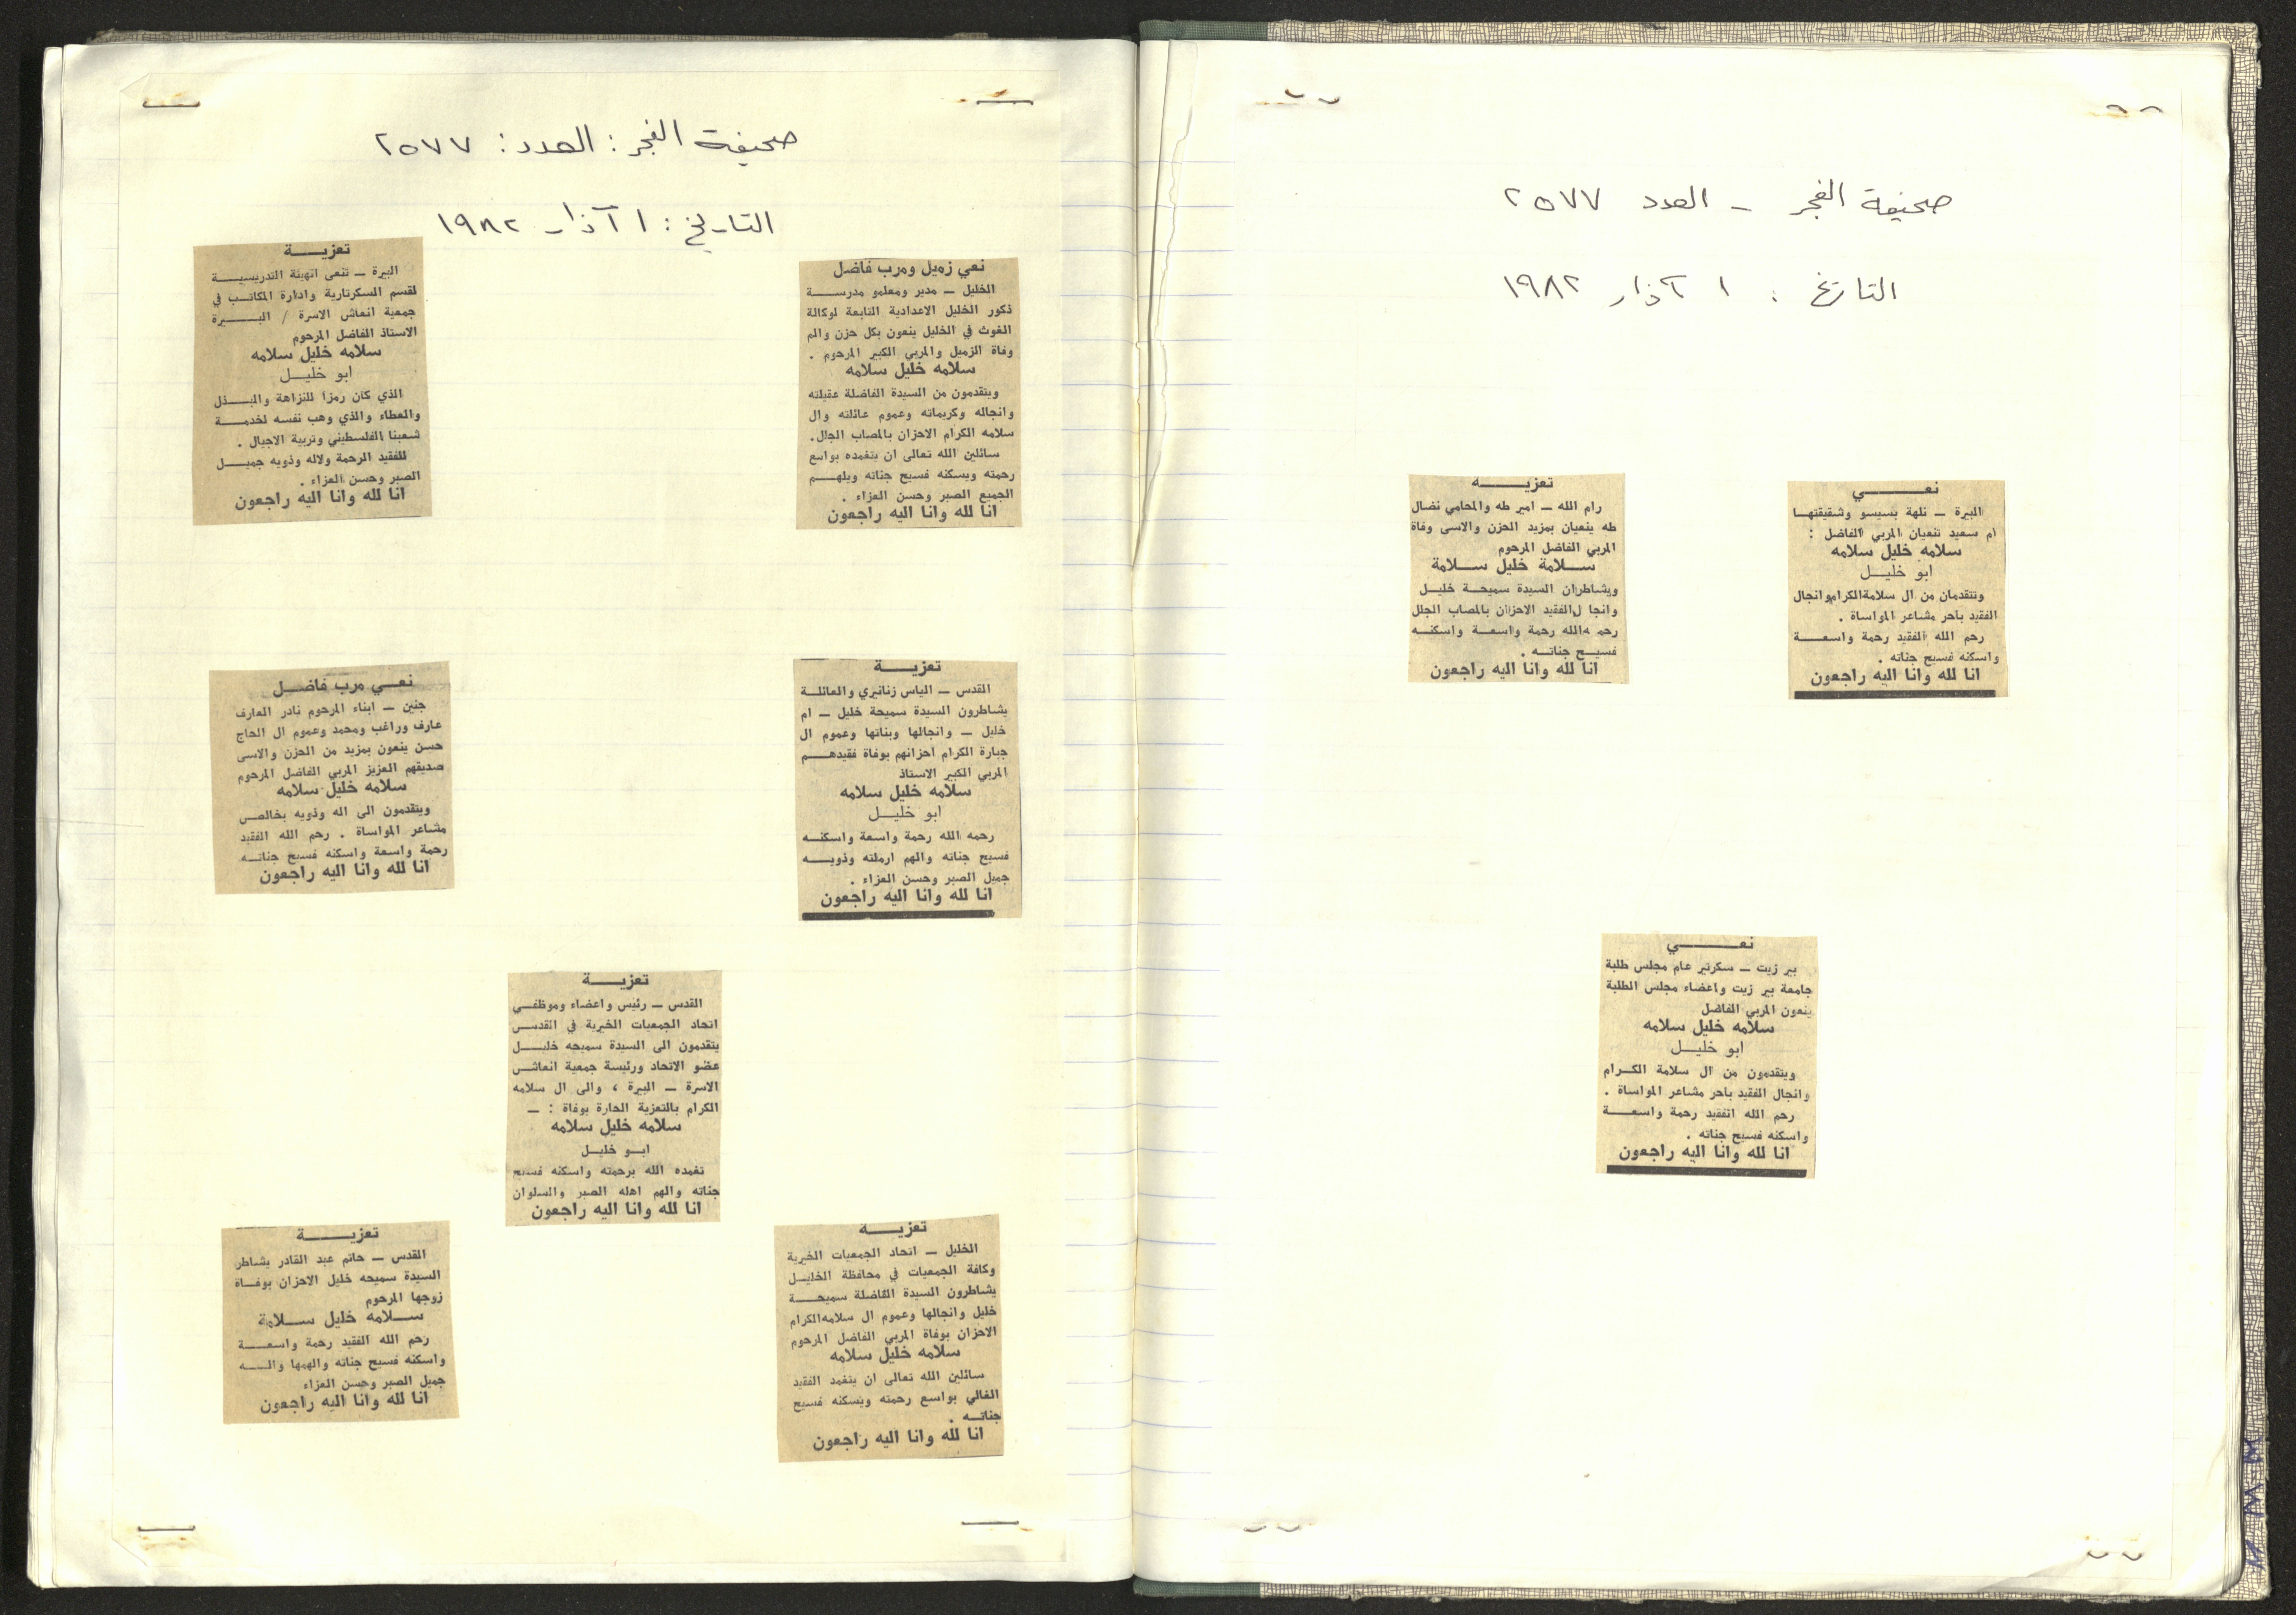 صحيفة الفجر - العدد ٢٥٧٧
التاريخ : ١ آذار ١٩٨٢
نعـــــي
البيرة ـ نلهة بسيسو وشقيقتهـا
ام سعيد تنعيان المربي الفاضل :
سلامه خليل سلامه
ابو خليـل
وتتقدمان من ال سلامة الكرام وانجال
الفقيد باحر مشاعر المواساة .
رحم الله الفقيد رحمة واسعـــة
واسكنه فسيح جناته .
انا لله وانا اليه راجعون
تعزيـــــه
رام الله ـ امير طه والمحامي نضال
طه ينعيان بمزيد الحزن والاسى وفاة
المربي الفاضل المرحوم
ســلامة خليل ســلامة
ويشاطران السيدة سميحـة خليـل
وانجا ل الفقيد الاحزان بالمصاب الجلل
رحم ه الله رحمة واسعـة واسكنـه
فسيـح جناتـه .
انا لله وانا اليه راجعون
نعـــــي
بير زيت ـ سكرتير عام مجلس طلبة
جامعة بير زيت واعضاء مجلس الطلبة
ينعون المربي الفاضل
سلامه خليل سلامه
ابو خليـل
ويتقدمون من ال سلامة الكـرام
وانجال الفقيد باحر مشاعر المواساة .
رحم الله الفقيد رحمة واسعـــة
واسكنه فسيح جناته .
انا لله وانا اليه راجعون
صحيفة الفجر : العدد : ٢٥٧٧
التاريخ : ١ آذار ١٩٨٢
نعي زميل ومرب فاضل
الخليل ـ مدير ومعلمو مدرســـة
ذكور الخليل الاعدادية التابعة لوكالة
الغوث في الخليل ينعون بكل حزن والم
وفاة الزميل والمربي الكبير المرحوم .
سلامه خليل سلامه
ويتقدمون من السيدة الفاضلة عقيلته
وانجاله وكريماته وعموم عائلته وال
سلامه الكرام الاحزان بالمصاب الجلل.
سائلين الله تعالى ان يتغمده بواسع
رحمته ويسكنه فسيح جناته ويلهـم
الجميع الصبر وحسن العزاء .
انا لله وانا اليه راجعون
تعزيـــــة
البيرة ـ تنعى الهيئة التدريسيـــة
لقسم السكرتارية وادارة المكاتـب في
جمعية انعاش الاسرة / البـــيرة
الاستاذ الفاضل المرحوم
سلامه خليل سلامه
ابو خليـل
الذي كان رمزا للنزاهة والبــذل
والعطاء والذي وهب نفسه لخدمـــة
شعبنا الفلسطيني وتربية الاجيال .
للفقيد الرحمة ولاله وذويه جميـل
الصبر وحسن العزاء .
انا لله وانا اليه راجعون
تعزيـــــة
القدس ـ الياس زنانيري والعائلـة
يشاطرون السيدة سميحة خليل ـ ام
خليل ـ وانجالها وبناتها وعموم ال
جبارة الكرام احزانهم بوفاة فقيدهـم
المربي الكبير الاستاذ
سلامه خليل سلامه
ابو خليـل
رحمه الله رحمة واسعة واسكنـه
فسيح جناته والهم ارملته وذويـه
جميل الصبر وحسن العزاء .
انا لله وانا اليه راجعون
نعـي مرب فاضـل
جنين ـ ابناء المرحوم نادر العارف
عارف وراغب ومحمد وعموم ال الحاج
حسن ينعون بمزيد من الحزن والاسى
صديقهم العزيز المربي الفاضل المرحوم
سلامه خليل سلامه
ويتقدمون الى اله وذويه بخالص
مشاعر المواساة . رحم الله الفقيد
رحمة واسعة واسكنه فسيح جناتـه
انا لله وانا اليه راجعون
تعزيـــــة
القدس ـ رئيس واعضاء وموظفـي
اتحاد الجمعيات الخيرية في القدس
يتقدمون الى السيدة سميحه خليـل
عضو الاتحاد ورئيسة جمعية انعاش
الاسرة ـ البيرة ، والى ال سلامه
الكرام بالتعزية الحارة بوفاة : ـ
سلامه خليل سلامه
ابـو خليـل
تغمده الله برحمته واسكنه فسيح
جناته والهم اهله الصبر والسلوان
انا لله وانا اليه راجعون
تعزيـــــه
الخليل ـ اتحاد الجمعيات الخيرية
وكافة الجمعيات في محافظة الخليـل
يشاطرون السيدة الفاضلة سميحـــة
خليل وانجالها وعموم ال سلامه الكرام
الاحزان بوفاة المربي الفاضل المرحوم
سلامه خليل سلامه
سائلين الله تعالى ان يتغمد الفقيد
الغالي بواسع رحمته ويسكنه فسيح
جناتـه .
انا لله وانا اليه راجعون
تعزيـــــة
القدس ـ حاتم عبد القادر يشاطر
السيدة سميحه خليل الاحزان بوفـاة
زوجها المرحوم
ســلامه خليل ســلامة
رحم الله الفقيد رحمة واسعـــة
واسكنه فسيح جناته والهمها والـــه
جميل الصبر وحسن العزاء
انا لله وانا اليه راجعون